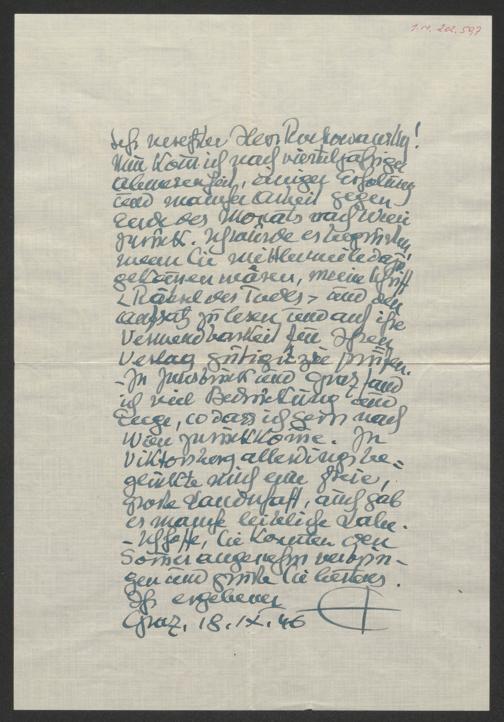 I.N. 202.597
Sehr verehrter Herr Rochowanski!
Nun komm ich nach vierteljähriger
Abwesenheit, einiger Erholung
und mancher Arbeit gegen
Ende des Monats nach Wien
zurück. Ich würde es begrüßen
wenn Sie mittlerweile dazu
gekommen wären, meine Schrift
„Rätsel des Todes“ und den
Aufsatz zu lesen und auf ihre
Verwendbarkeit für Ihren
Verlag gütigst zu prüfen.
– In Innsbruck und Graz fand
ich viel Bedrückung und
Enge, so dass ich gern nach
Wien zurückkomme. In
Viktorsberg allerdings be=
glückte mich eine freie,
große Landschaft, auch gab
es manche leibliche Labe.
– Ich hoffe, Sie konnten den
Sommer angenehm verbrin-
gen und grüße Sie bestens.
Ihr ergebener
Graz, 18. IX. 46